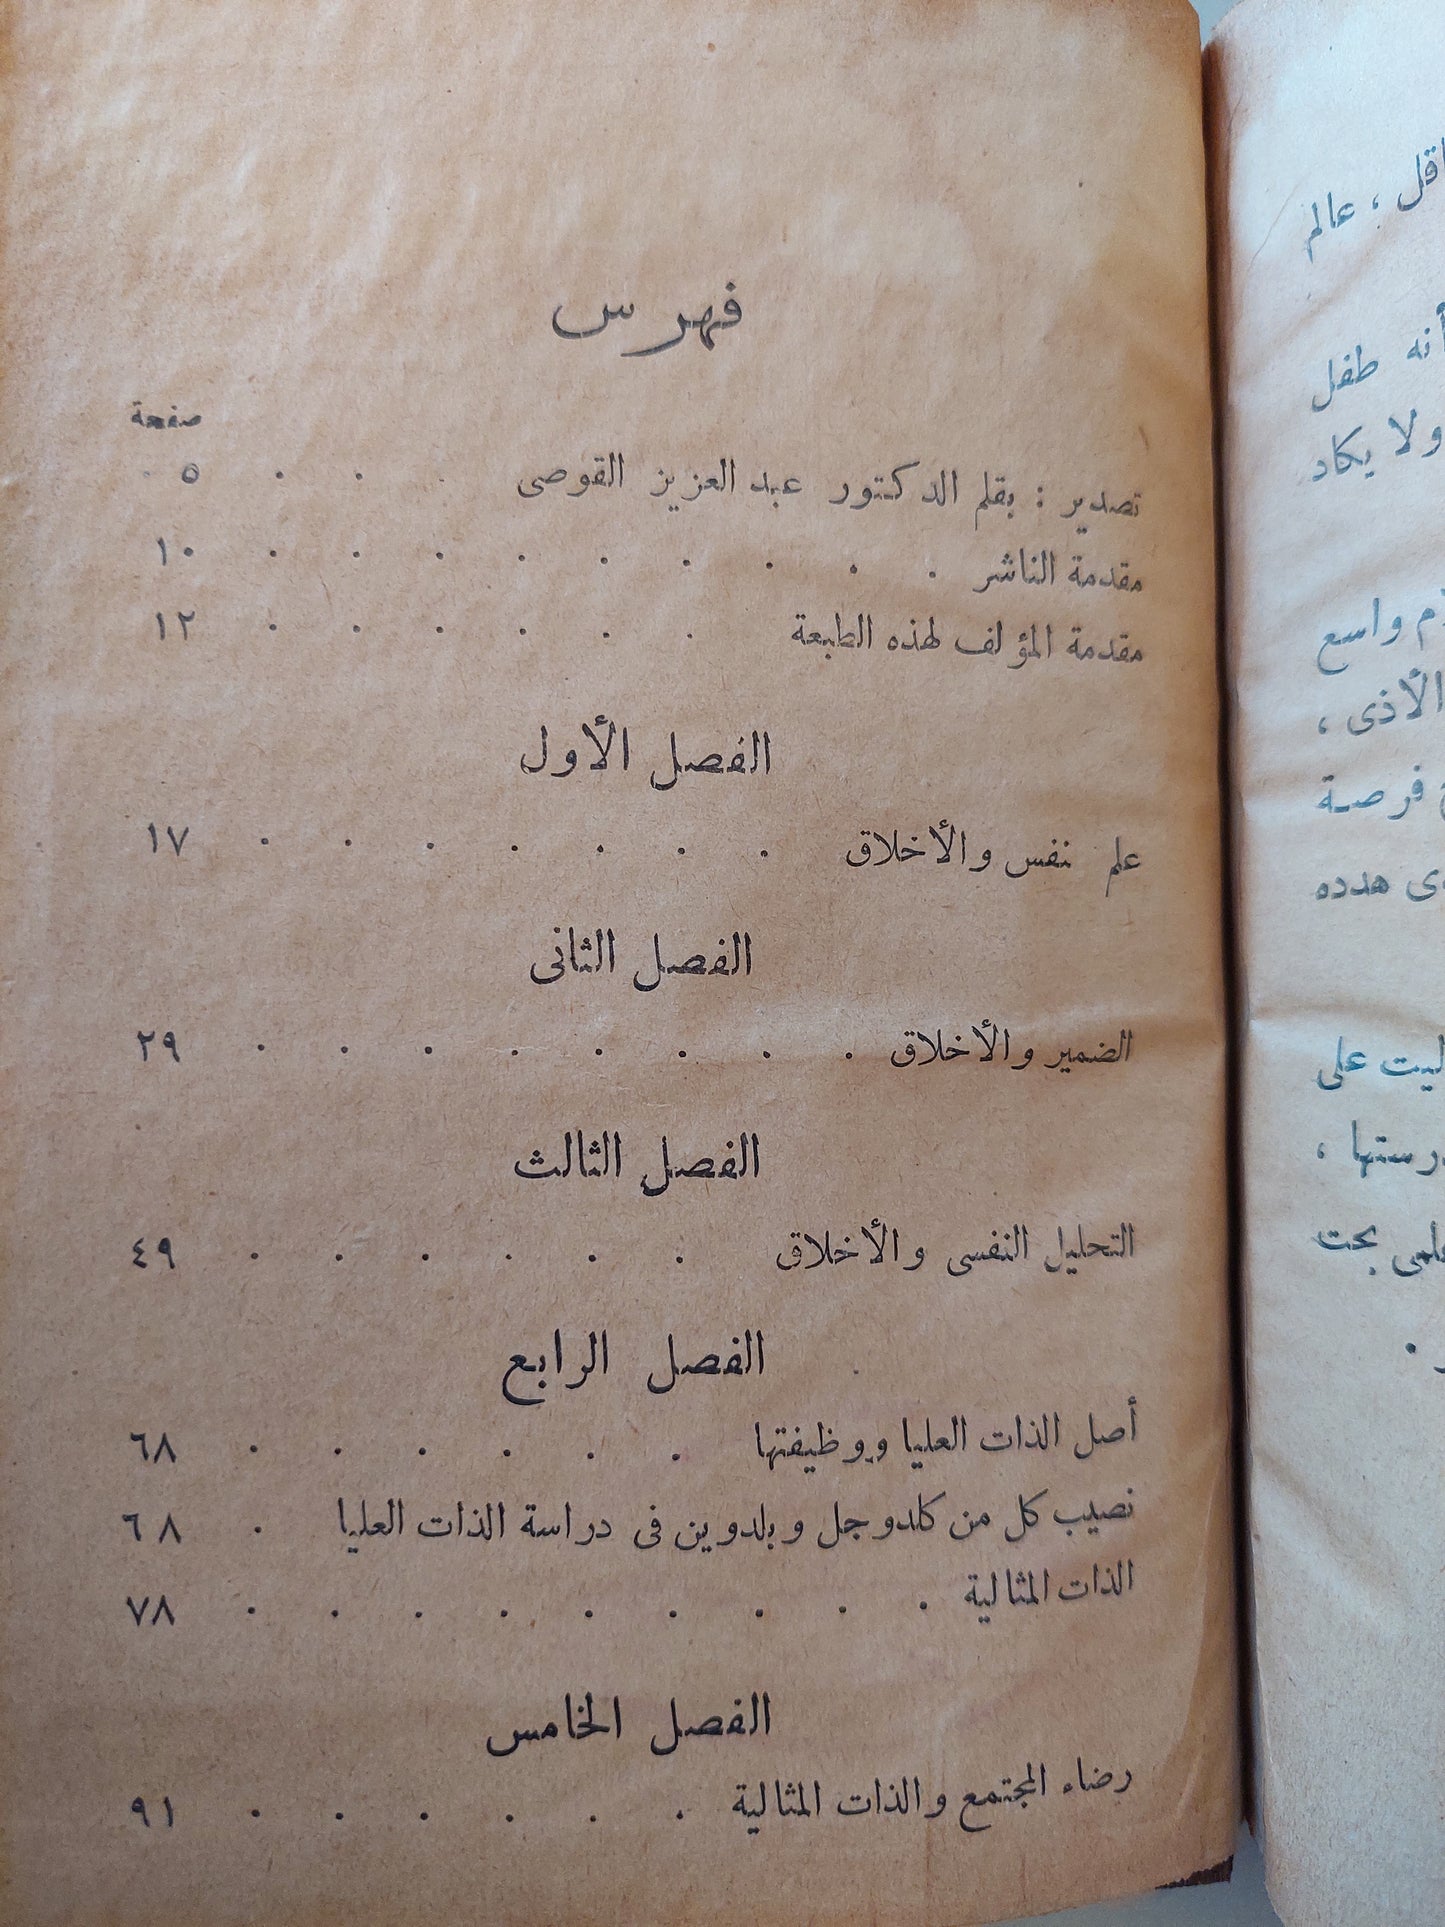 فهرس
صفحة
تصدير : بقلم الدكتور عبد العزيز القوصى . . . ٥
مقدمة الناشر . . . . . . . . . ١٠
مقدمة المؤلف لهذه الطبعة . . . . . . ١٢
الفصل الأول
علم نفس والأخلاق . . . . . . . ١٧
الفصل الثانى
الضمير والأخلاق . . . . . . . . ٢٩
الفصل الثالث
التحليل النفسى والأخلاق . . . . . . ٤٩
الفصل الرابع
أصل الذات العليا ووظيفتها . . . . . . ٦٨
نصيب كل من كلدوجل وبلدوين فى دراسة الذات العليا . ٦٨
الذات المثالية . . . . . . . . . ٧٨
الفصل الخامس
رضاء المجتمع والذات المثالية . . . . . . ٩١
، عالم
أنه طفل
ولا يكاد
واسع
الأذى ،
فرصة
هدده
على
بحت